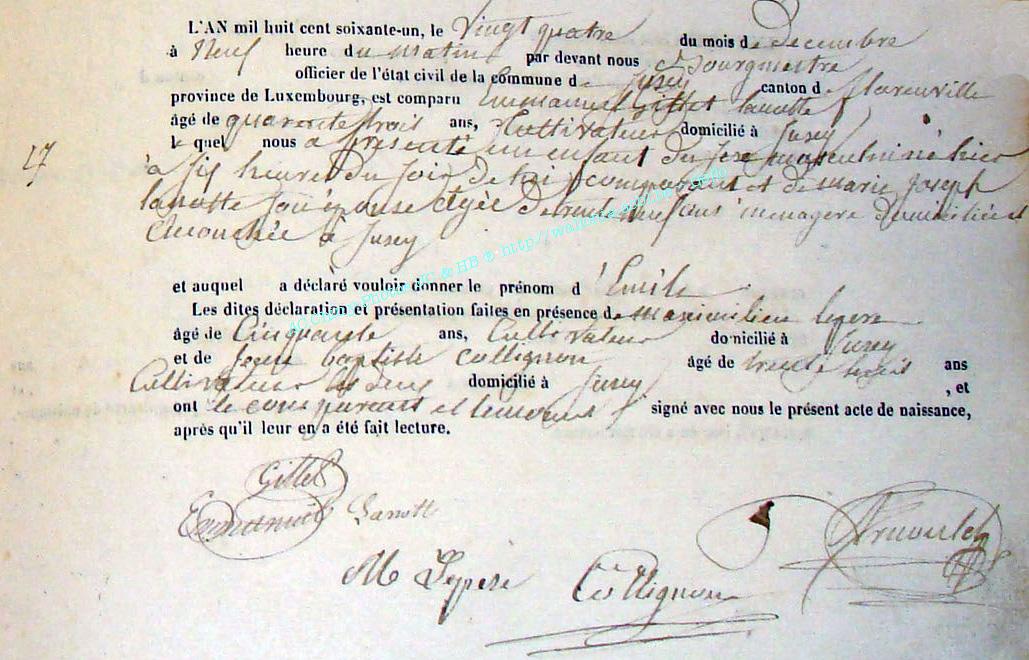 L'AN mil huit cent soixante-un, le vingt quatre du mois de decembre
à neuf heure du matin par devant nous Bourgmestre
officier de l'état civil de la commune de Jusey canton de florenville
province de Luxembourg, est comparu Emmanuel Gillet lanotte
âgé de quarente trois ans, Cultivateur domicilié à Jusey
le quel nous a presenté un enfant du sexe masculin né hier
17
à six heures du soir de lui comparant et de marie joseph
lanotte son épouse agée de trente neuf ans menagere domiciliée et
accouchée a Jusey
et auquel a déclaré vouloir donner le prénom d'Emile
Les dites déclaration et présentation faites en présence de maximilien lepere
âgé de Cinquante ans, Cultivateur domicilié à Jusey
et de Jean baptiste collignon âgé de trente ans
Cultivateur les deux domicilié à Jusey , et
ont le comparant et temoins signé avec nous le présent acte de naissance,
après qu'il leur en a été fait lecture.
Gillet
Emmanuel Lanotte
M Lepere Collignon